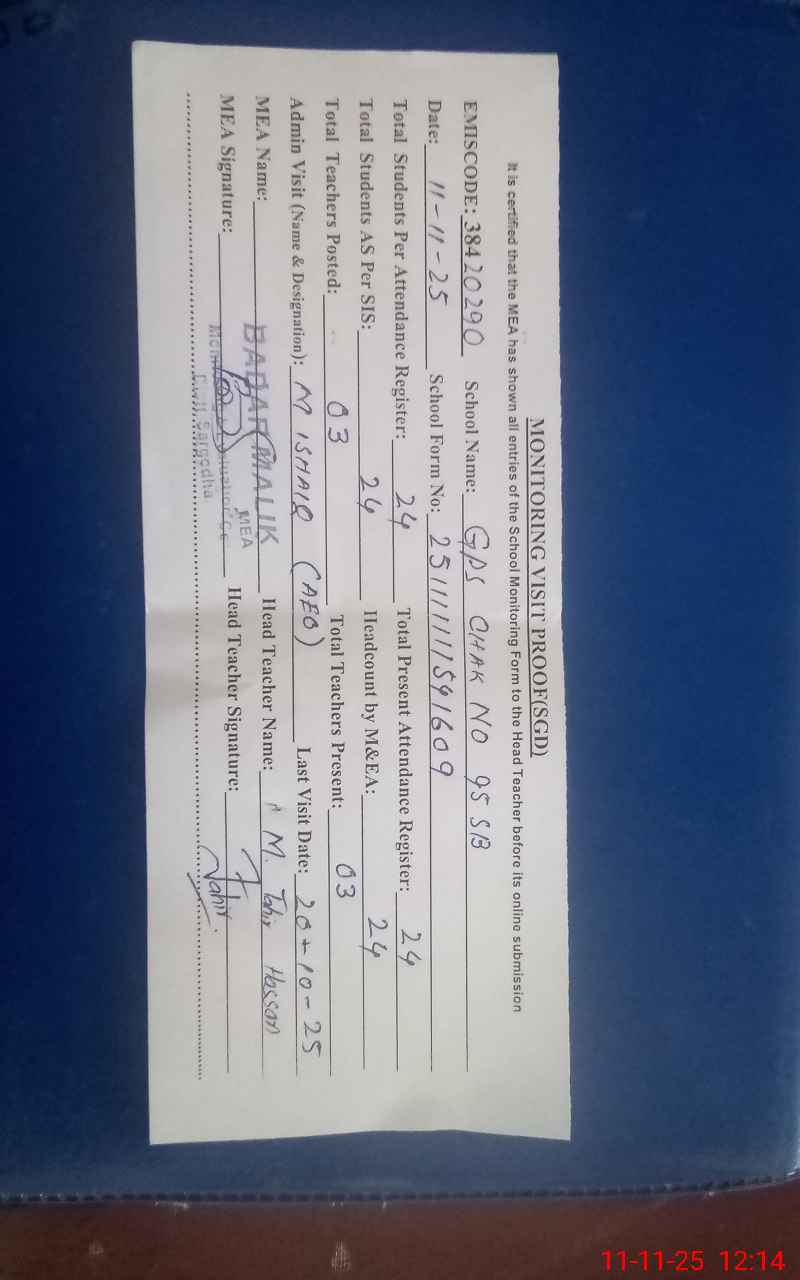 MONITORING VISIT PROOF(SGD)
It is certified that the MEA has shown all entries of the School Monitoring Form to the Head Teacher before its online submission
EMISCODE: 38420290 School Name: GPS CHAK NO 95 SB
Date: 11-11-25 School Form No: 25111111591609
Total Students Per Attendance Register: 24 Total Present Attendance Register: 24
Total Students AS Per SIS: 24 Headcount by M&EA: 24
Total Teachers Posted: 03 Total Teachers Present: 03
Admin Visit (Name & Designation): M ISHAIQ (AEO) Last Visit Date: 20-10-25
MEA Name: BADAR MALIK Head Teacher Name: M. Tahir Hassan
MEA
MEA Signature: Head Teacher Signature: Tahir
Sargodha
11-11-25 12:14